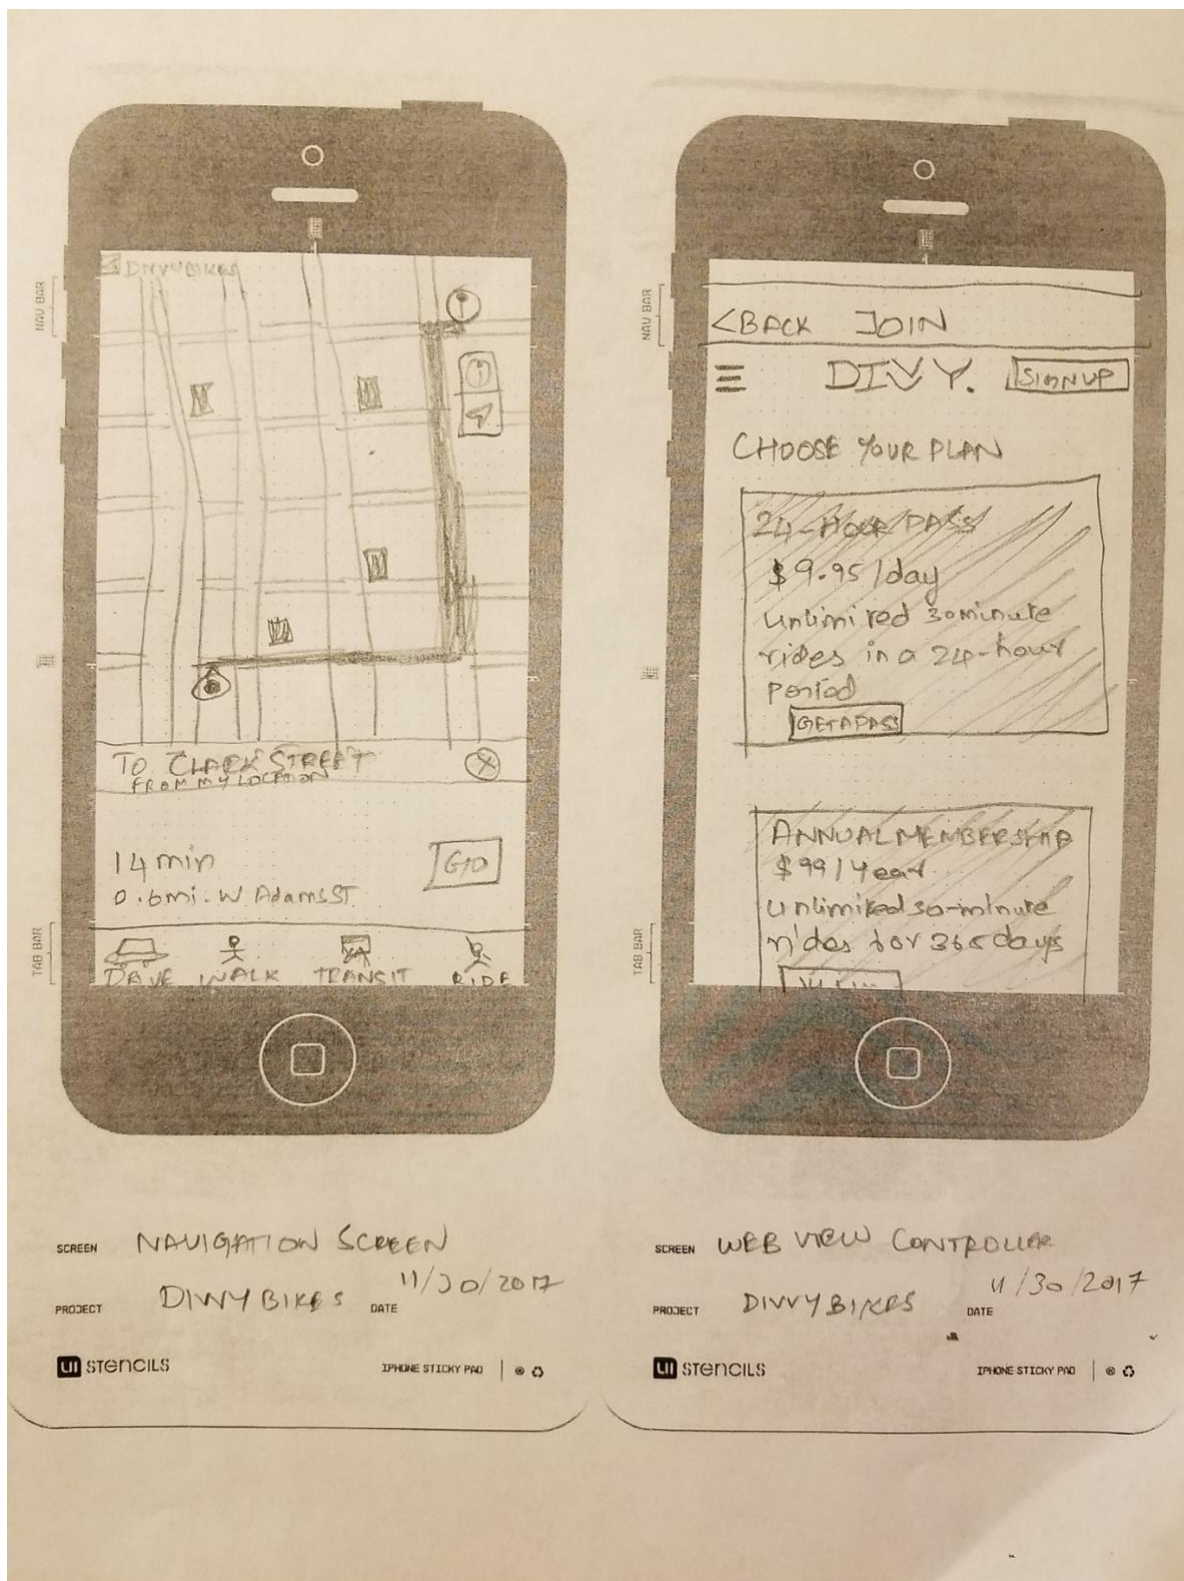 NAV BAR
DIVVYBIKES
TO CLARK STREET
FROM MY LOCATION
14 min
GO
0.6mi. W Adams ST.
TAB BAR
DAVE WALK TRANSIT RIDE
SCREEN NAVIGATION SCREEN
PROJECT DIVVY BIKES DATE 11/30/2017
UI STENCILS IPHONE STICKY PAD
NAV BAR
<BACK JOIN
DIVVY. SIGNUP
CHOOSE YOUR PLAN
24-HOUR PASS
$9.95/day
unlimired 30minute
rides in a 24-hour
period
GET A PASS
ANNUAL MEMBERSHIP
$99/Year
unlimited 30-minute
rides for 365 days
TAB BAR
SCREEN WEB VIEW CONTROLLER
PROJECT DIVVY BIKES DATE 11/30/2017
UI STENCILS IPHONE STICKY PAD